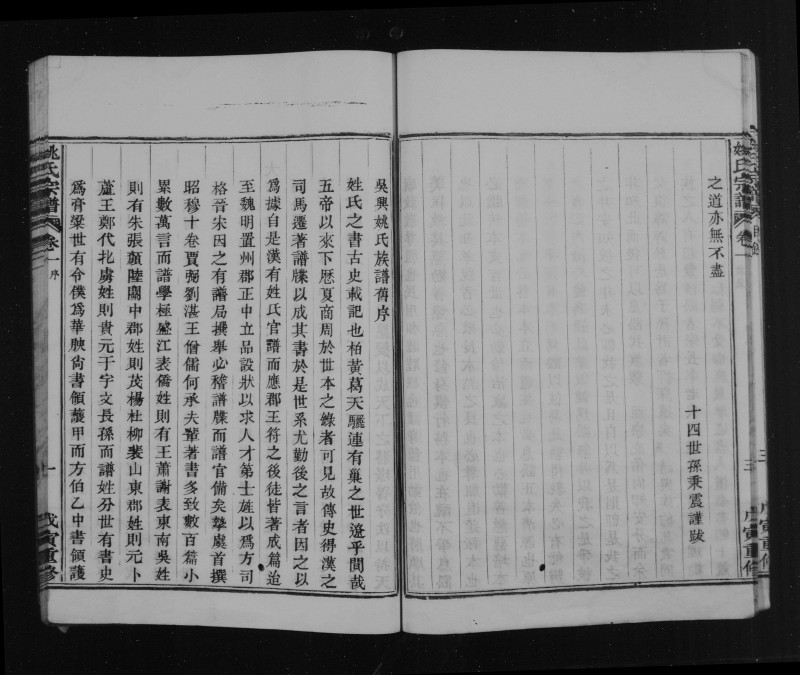 姚氏宗譜 卷一
三
戊寅重修
之道亦無不盡
十四世孫秉震謹跋
吳興姚氏族譜舊序
姓氏之書古史載記也柏黃葛天驪連有巢之世遼乎閒哉
五帝以來下歷夏商周於世本之錄者可見故傳史得漢之
司馬遷著譜牒以成其書於是世系尤勤後之言者因之以
為據自是漢有姓氏官譜而應郡王符之後徒皆著成篇迨
至魏明置州郡正中立品設狀以求人才第士族以為方司
格晉宋因之有譜局撰舉必稽譜牒而譜官備矣摯虞首撰
昭穆十卷賈弼劉湛王僧儒何承夫輩著書多致數百篇小
累數萬言而譜學極盛江表僑姓則有王蕭謝袁東南吳姓
則有朱張顧陸關中郡姓則茂楊杜柳裴山東郡姓則元卜
蘆王鄭代北虜姓則貴元于宇文長孫而譜姓分世有書史
為膏粱世有令僕為華腴尚書領護甲而方伯乙中書領護
姚氏宗譜 卷一 序
一
戊寅重修